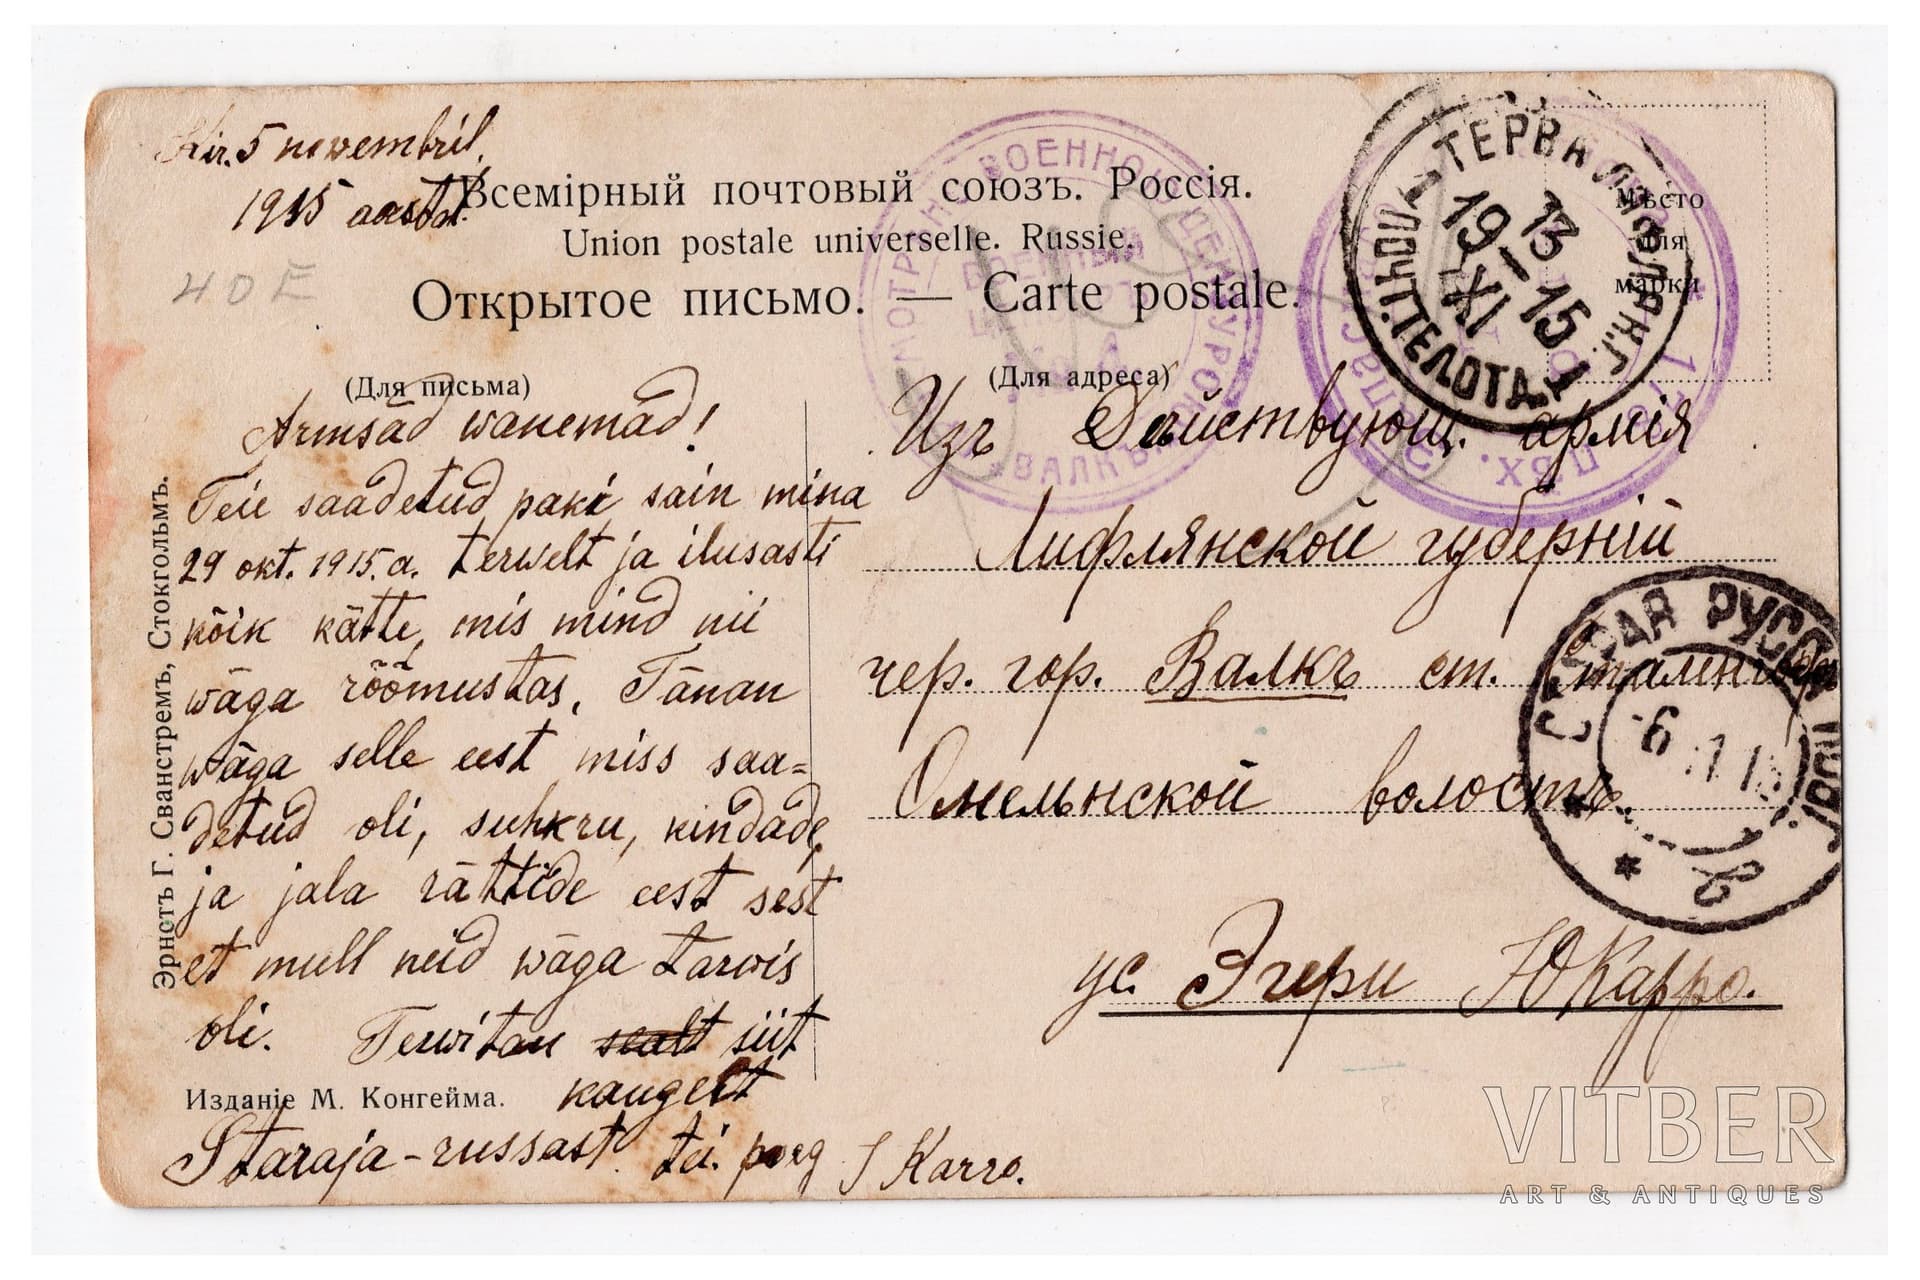 Kir. 5 nowembril,
1915 aastal.
Всемірный почтовый союзъ. Россія.
Union postale universelle. Russie.
Открытое письмо. — Carte postale.
40E
(Для письма)
Armsäd wanemad!
Teie saadetud paki sain mina
29 okt. 1915. a. terwelt ja ilusasti
kõik kätte, mis mind nii
wäga rõõmustas. Tänan
wäga selle eest miss saa=
detud oli, suhkru, kindade,
ja jala rättide eest sest
et mull neid wäga tarwis
oli. Terwitan sealt siit
kaugelt
Staraja-russast. tei. poeg J Karro.
Эрнстъ Г. Сванстремъ, Стокгольмъ.
Изданіе М. Конгейма.
(Для адреса)
Мѣсто
для
марки
Изъ Дѣйствующ. армія
Лифлянской губерній
чер. гор. Валкъ ст. Сталенгоф
Омельнской волость.
ус. Эгери Ю Карро.
ВОЕННОЙ ЦЕНЗУРОЮ
ВОЕННЫЙ
ВАЛКЪ
ТЕРВА ЛИФЛЯН.Г.
ПОЧТ.ТЕЛ.ОТД.
13
19-15
XI
СТАРАЯ РУССА НОВГ.
6 11 15
VITBER
ART & ANTIQUES